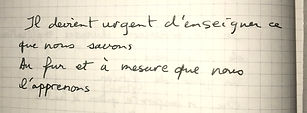 Il devient urgent d'enseigner ce
que nous savons
Au fur et à mesure que nous
l'apprenons